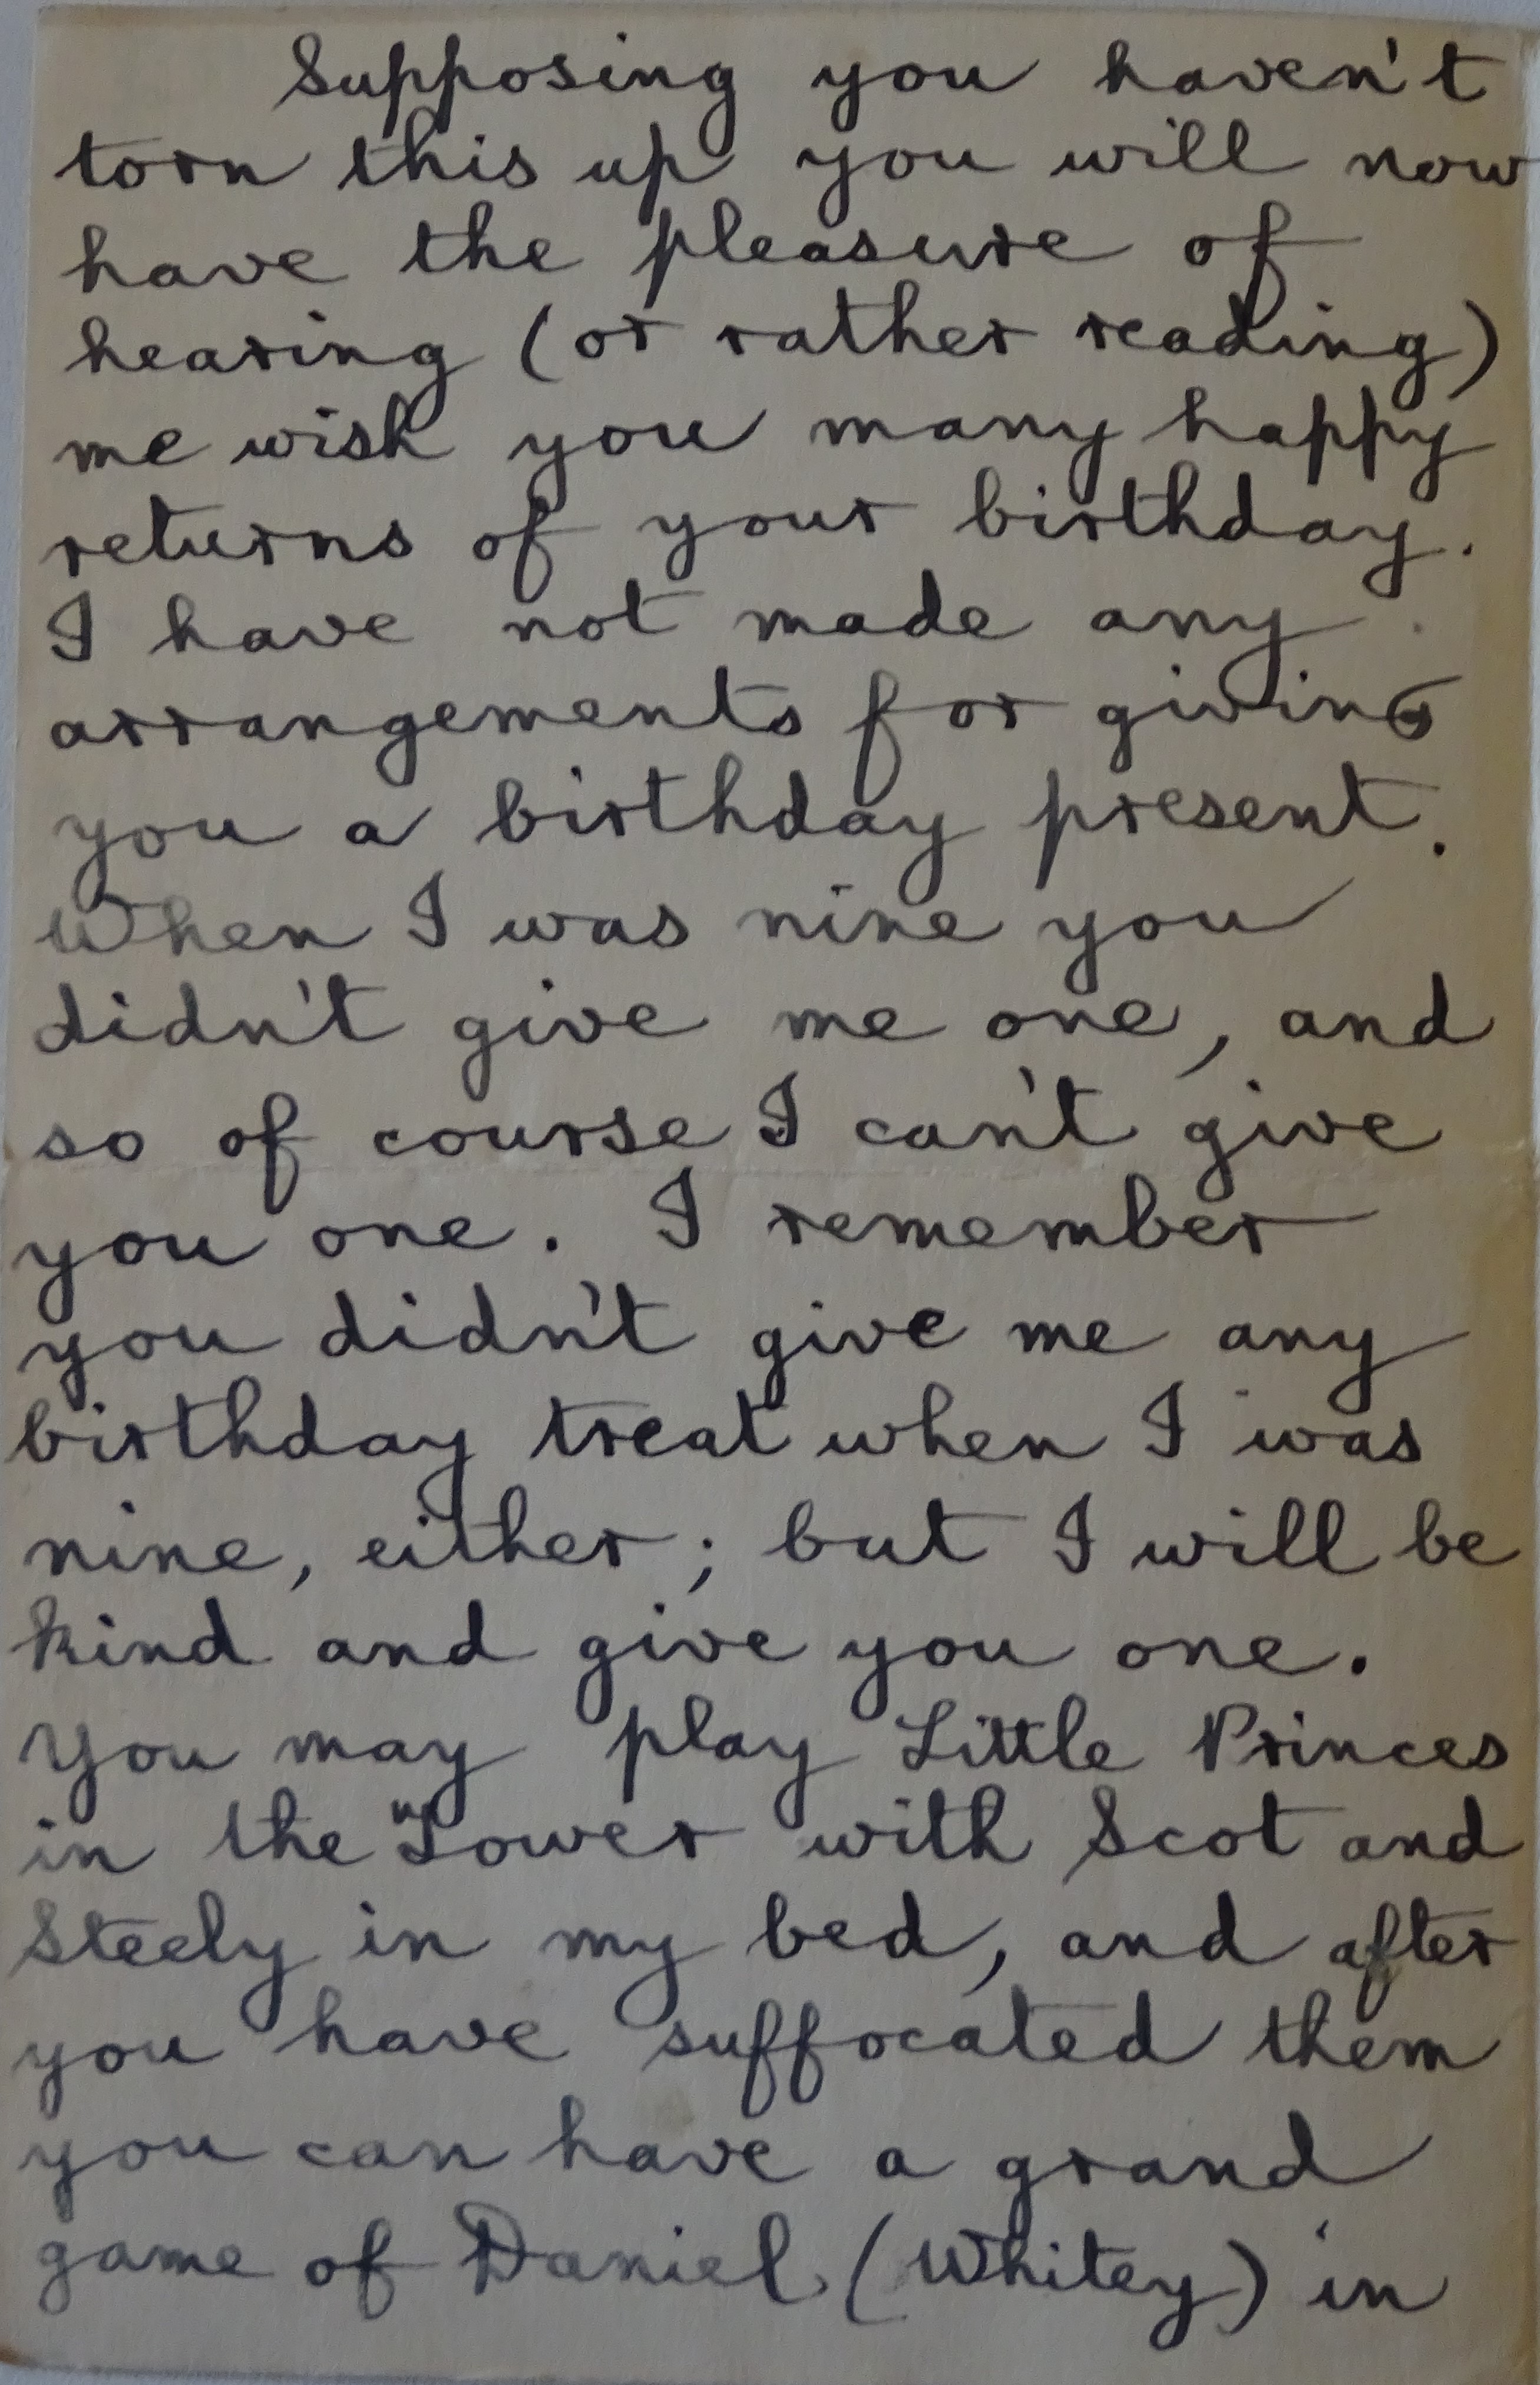 Supposing you haven't
torn this up you will now
have the pleasure of
hearing (or rather reading)
me wish you many happy
returns of your birthday.
I have not made any
arrangements for giving
you a birthday present.
When I was nine you
didn't give me one, and
so of course I can't give
you one. I remember
you didn't give me any
birthday treat when I was
nine, either; but I will be
kind and give you one.
You may play Little Princes
in the Tower with Scot and
Steely in my bed, and after
you have suffocated them
you can have a grand
game of Daniel (Whitey) in